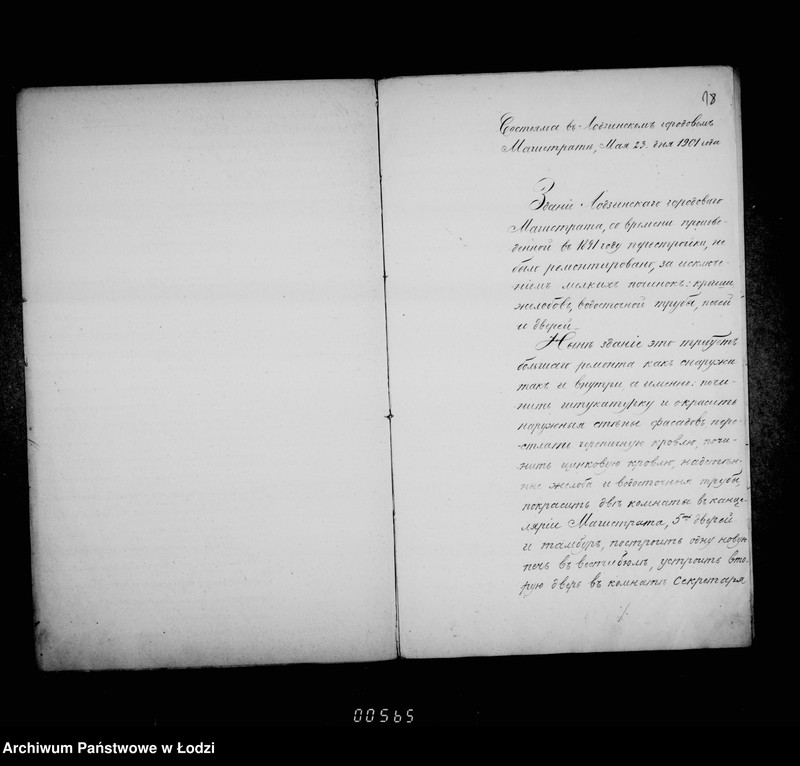 18
Состояма въ Лодзинскомъ городовомъ
Магистратѣ, Мая 23. дня 1901 года
Зданіе Лодзинскаго городоваго
Магистрата, со времени произве-
денной въ 1891 году перестройки, не
было ремонтировано, за исклюе-
ніемъ мелкихъ починокъ: крыши,
желобовъ, водосточной трубы, печей
и дверей.
Нынѣ зданіе это требуетъ
большаго ремонта какъ снаружи
такъ и внутри, а именно: почи-
нить штукатурку и окрасить
наружныя стѣны фасадовъ, пере-
стлать черепичную кровлю, почи-
нить цинковую кровлю, надстѣн-
ные желоба и водосточныя трубы,
покрасить двѣ комнаты въ канце-
ляріи Магистрата, 5ть дверей
и тамбуръ, построить одну новую
печь въ вестибюлѣ, устроить вто-
рую дверь въ комнатѣ Секретаря
./.
00565
Archiwum Państwowe w Łodzi